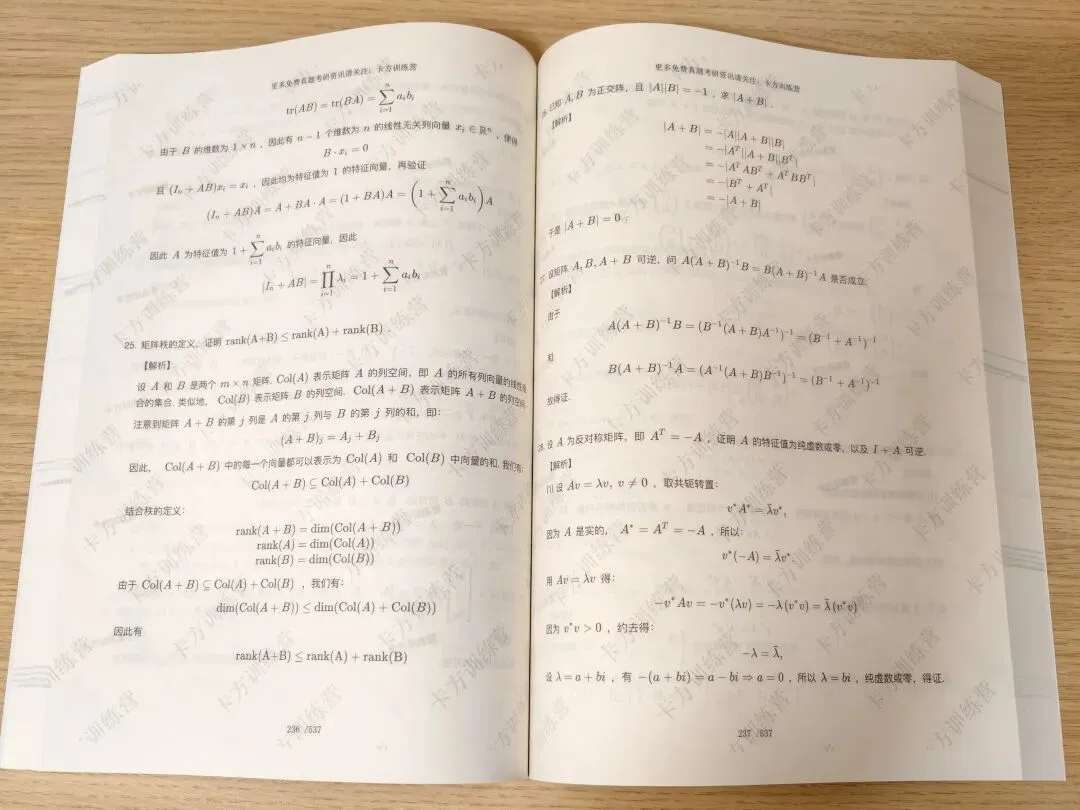 更多免费真题考研资讯请关注：卡方训练营
tr(AB) = tr(BA) = \sum_{i=1}^{n} a_i b_i
由于 B 的维数为 1 × n ，因此有 n − 1 个维数为 n 的线性无关列向量 x_i ∈ ℝ^n ，使得
B · x_i = 0
且 (I_n + AB)x_i = x_i ，因此均为特征值为 1 的特征向量，再验证
(I_n + AB)A = A + BA · A = (1 + BA)A = \left(1 + \sum_{i=1}^{n} a_i b_i\right) A
因此 A 为特征值为 1 + \sum_{i=1}^{n} a_i b_i 的特征向量，因此
|I_n + AB| = \prod_{i=1}^{n} λ_i = 1 + \sum_{i=1}^{n} a_i b_i
25. 矩阵秩的定义，证明 rank(A+B) ≤ rank(A) + rank(B) .
【解析】
设 A 和 B 是两个 m × n 矩阵. Col(A) 表示矩阵 A 的列空间，即 A 的所有列向量的线性组
合的集合. 类似地， Col(B) 表示矩阵 B 的列空间. Col(A + B) 表示矩阵 A + B 的列空间.
注意到矩阵 A + B 的第 j 列是 A 的第 j 列与 B 的第 j 列的和，即：
(A + B)_j = A_j + B_j
因此， Col(A + B) 中的每一个向量都可以表示为 Col(A) 和 Col(B) 中向量的和. 我们有：
Col(A + B) ⊆ Col(A) + Col(B)
结合秩的定义：
rank(A + B) = dim(Col(A + B))
rank(A) = dim(Col(A))
rank(B) = dim(Col(B))
由于 Col(A + B) ⊆ Col(A) + Col(B) ，我们有：
dim(Col(A + B)) ≤ dim(Col(A) + Col(B))
因此有
rank(A+B) ≤ rank(A) + rank(B)
236 /537
更多免费真题考研资讯请关注：卡方训练营
已知 A, B 为正交阵，且 |A||B| = −1 ，求 |A + B| .
【解析】
|A + B| = −|A||A + B||B|
= −|A^T||A + B||B^T|
= −|A^T AB^T + A^T BB^T|
= −|B^T + A^T|
= −|A + B|
于是 |A + B| = 0 .
27. 设矩阵 A, B, A + B 可逆，问 A(A + B)^{-1}B = B(A + B)^{-1}A 是否成立.
【解析】
由于
A(A + B)^{-1}B = (B^{-1}(A + B)A^{-1})^{-1} = (B^{-1} + A^{-1})^{-1}
和
B(A + B)^{-1}A = (A^{-1}(A + B)B^{-1})^{-1} = (B^{-1} + A^{-1})^{-1}
故得证.
28. 设 A 为反对称矩阵，即 A^T = −A ，证明 A 的特征值为纯虚数或零，以及 I + A 可逆.
【解析】
(1) 设 Av = λv, v ≠ 0 ，取共轭转置：
v^*A^* = \bar{λ}v^*,
因为 A 是实的， A^* = A^T = −A ，所以：
v^*(−A) = \bar{λ}v^*.
用 Av = λv 得：
−v^*Av = −v^*(λv) = −λ(v^*v) = \bar{λ}(v^*v)
因为 v^*v > 0 ，约去得：
−λ = \bar{λ},
设 λ = a + bi ，有 −(a + bi) = a − bi ⇒ a = 0 ，所以 λ = bi ，纯虚数或零，得证.
237 /537